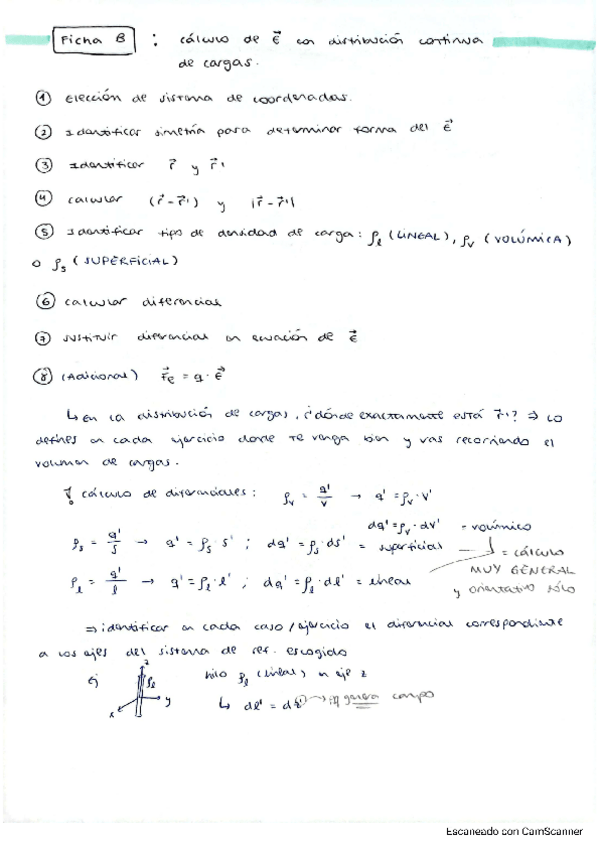 Ficha B : cálculo de E⃗ con distribución continua
de cargas.
① Elección de sistema de coordenadas.
② Identificar simetría para determinar forma del E⃗
③ Identificar r⃗ y r⃗'
④ calcular (r⃗ - r⃗') y |r⃗ - r⃗'|
⑤ Identificar tipo de densidad de carga: ρl (LINEAL), ρv (VOLÚMICA)
o ρs (SUPERFICIAL)
⑥ calcular diferencias
⑦ sustituir diferencias en ecuación de E⃗
⑧ (Adicional) F⃗e = q · E⃗
↳ en la distribución de cargas, ¿dónde exactamente está r⃗'? ⇒ lo
defines en cada ejercicio donde te venga bien y vas recorriendo el
volumen de cargas.
cálculo de diferenciales: ρv = q'/v → q' = ρv · v'
dq' = ρv · dv' = volúmico
ρs = q'/s → q' = ρs · s' ; dq' = ρs · ds' = superficial → = cálculo
MUY GENERAL
ρl = q'/l → q' = ρl · l' ; dq' = ρl · dl' = lineal y orientativo sólo
⇒ identificar en cada caso/ejercicio el diferencial correspondiente
a los ejes del sistema de ref. escogido
ej z ρl hilo ρl (lineal) en eje z
x y ↳ dl' = dz' → genera campo
Escaneado con CamScanner